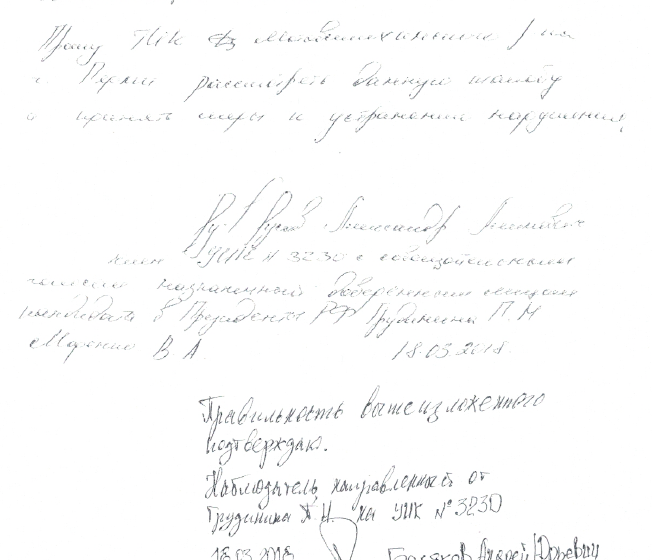 Прошу ТИК
г. Перми рассмотреть данную жалобу
и принять меры к устранению нарушения
Александр
член УИК № 3230 с совещательным
голосом назначенный доверенным лицом
кандидата в Президенты РФ Грудинина П. Н.
В. А. 18.03.2018.
Правильность вышеизложенного
подтверждаю.
Наблюдатель, направленный от
Грудинина П. Н. на УИК № 3230
18.03.2018 Андрей Юрьевич